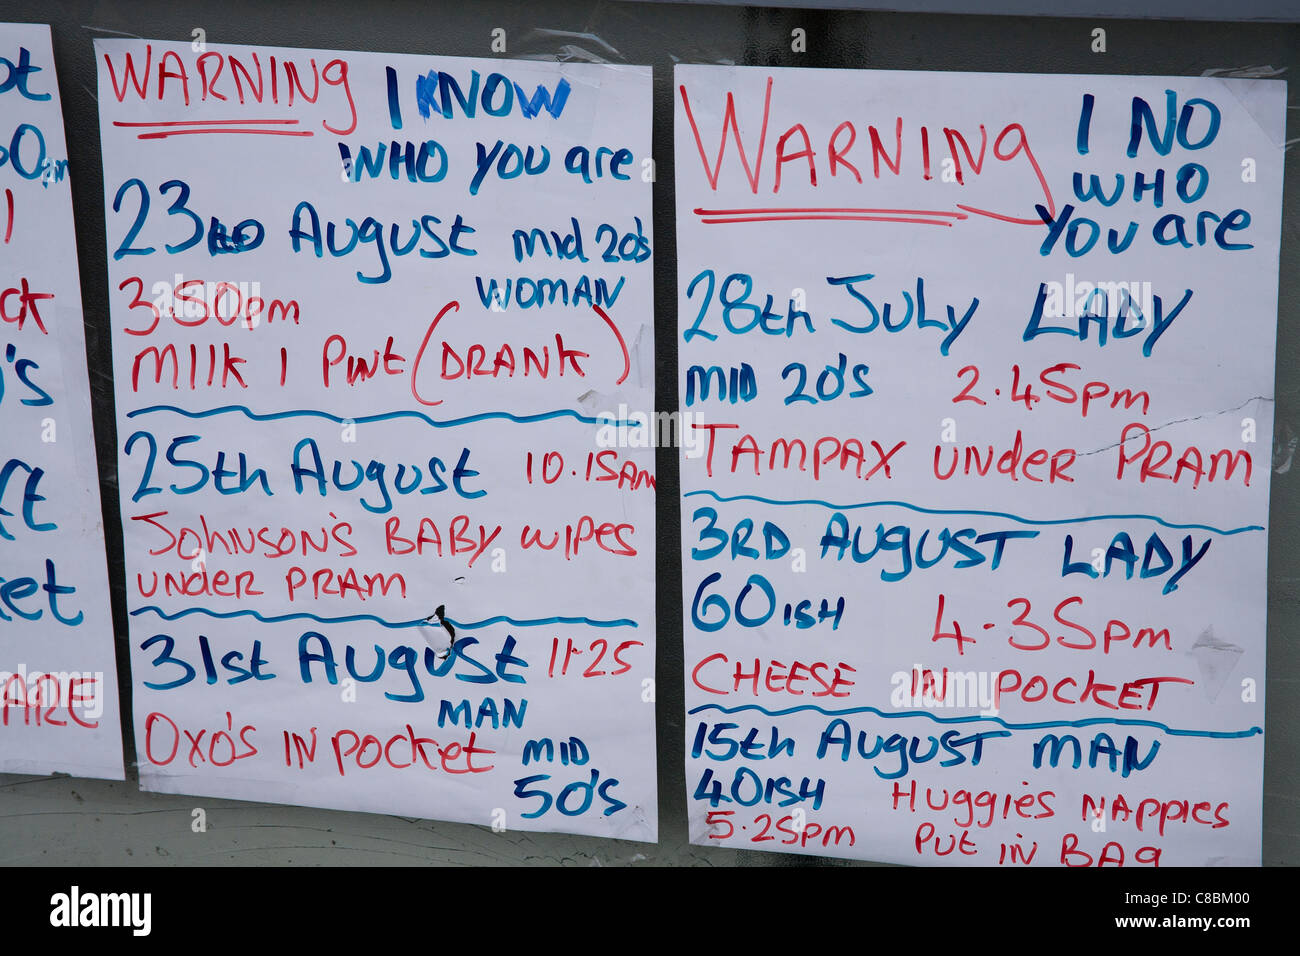 ot
50pm
1
ck
's
ft
et
ARE
WARNING I KNOW
WHO YOU are
23rd August mid 20's
WOMAN
3.50pm
Milk 1 Pint (DRANK)
25th August 10.15am
JOHNSON'S BABY WIPES
UNDER PRAM
31st August 11.25
MAN
OXO'S IN POCKET MID
50's
WARNING I NO
WHO
YOU are
28th JULY LADY
MID 20's 2.45pm
TAMPAX UNDER PRAM
3RD AUGUST LADY
60ISH 4.35pm
CHEESE IN POCKET
15th AUGUST MAN
40ISH HUGGIES NAPPIES
5.25pm PUT IN BAG
a alamy stock photo
alamy
Image ID: C8BM00
www.alamy.com